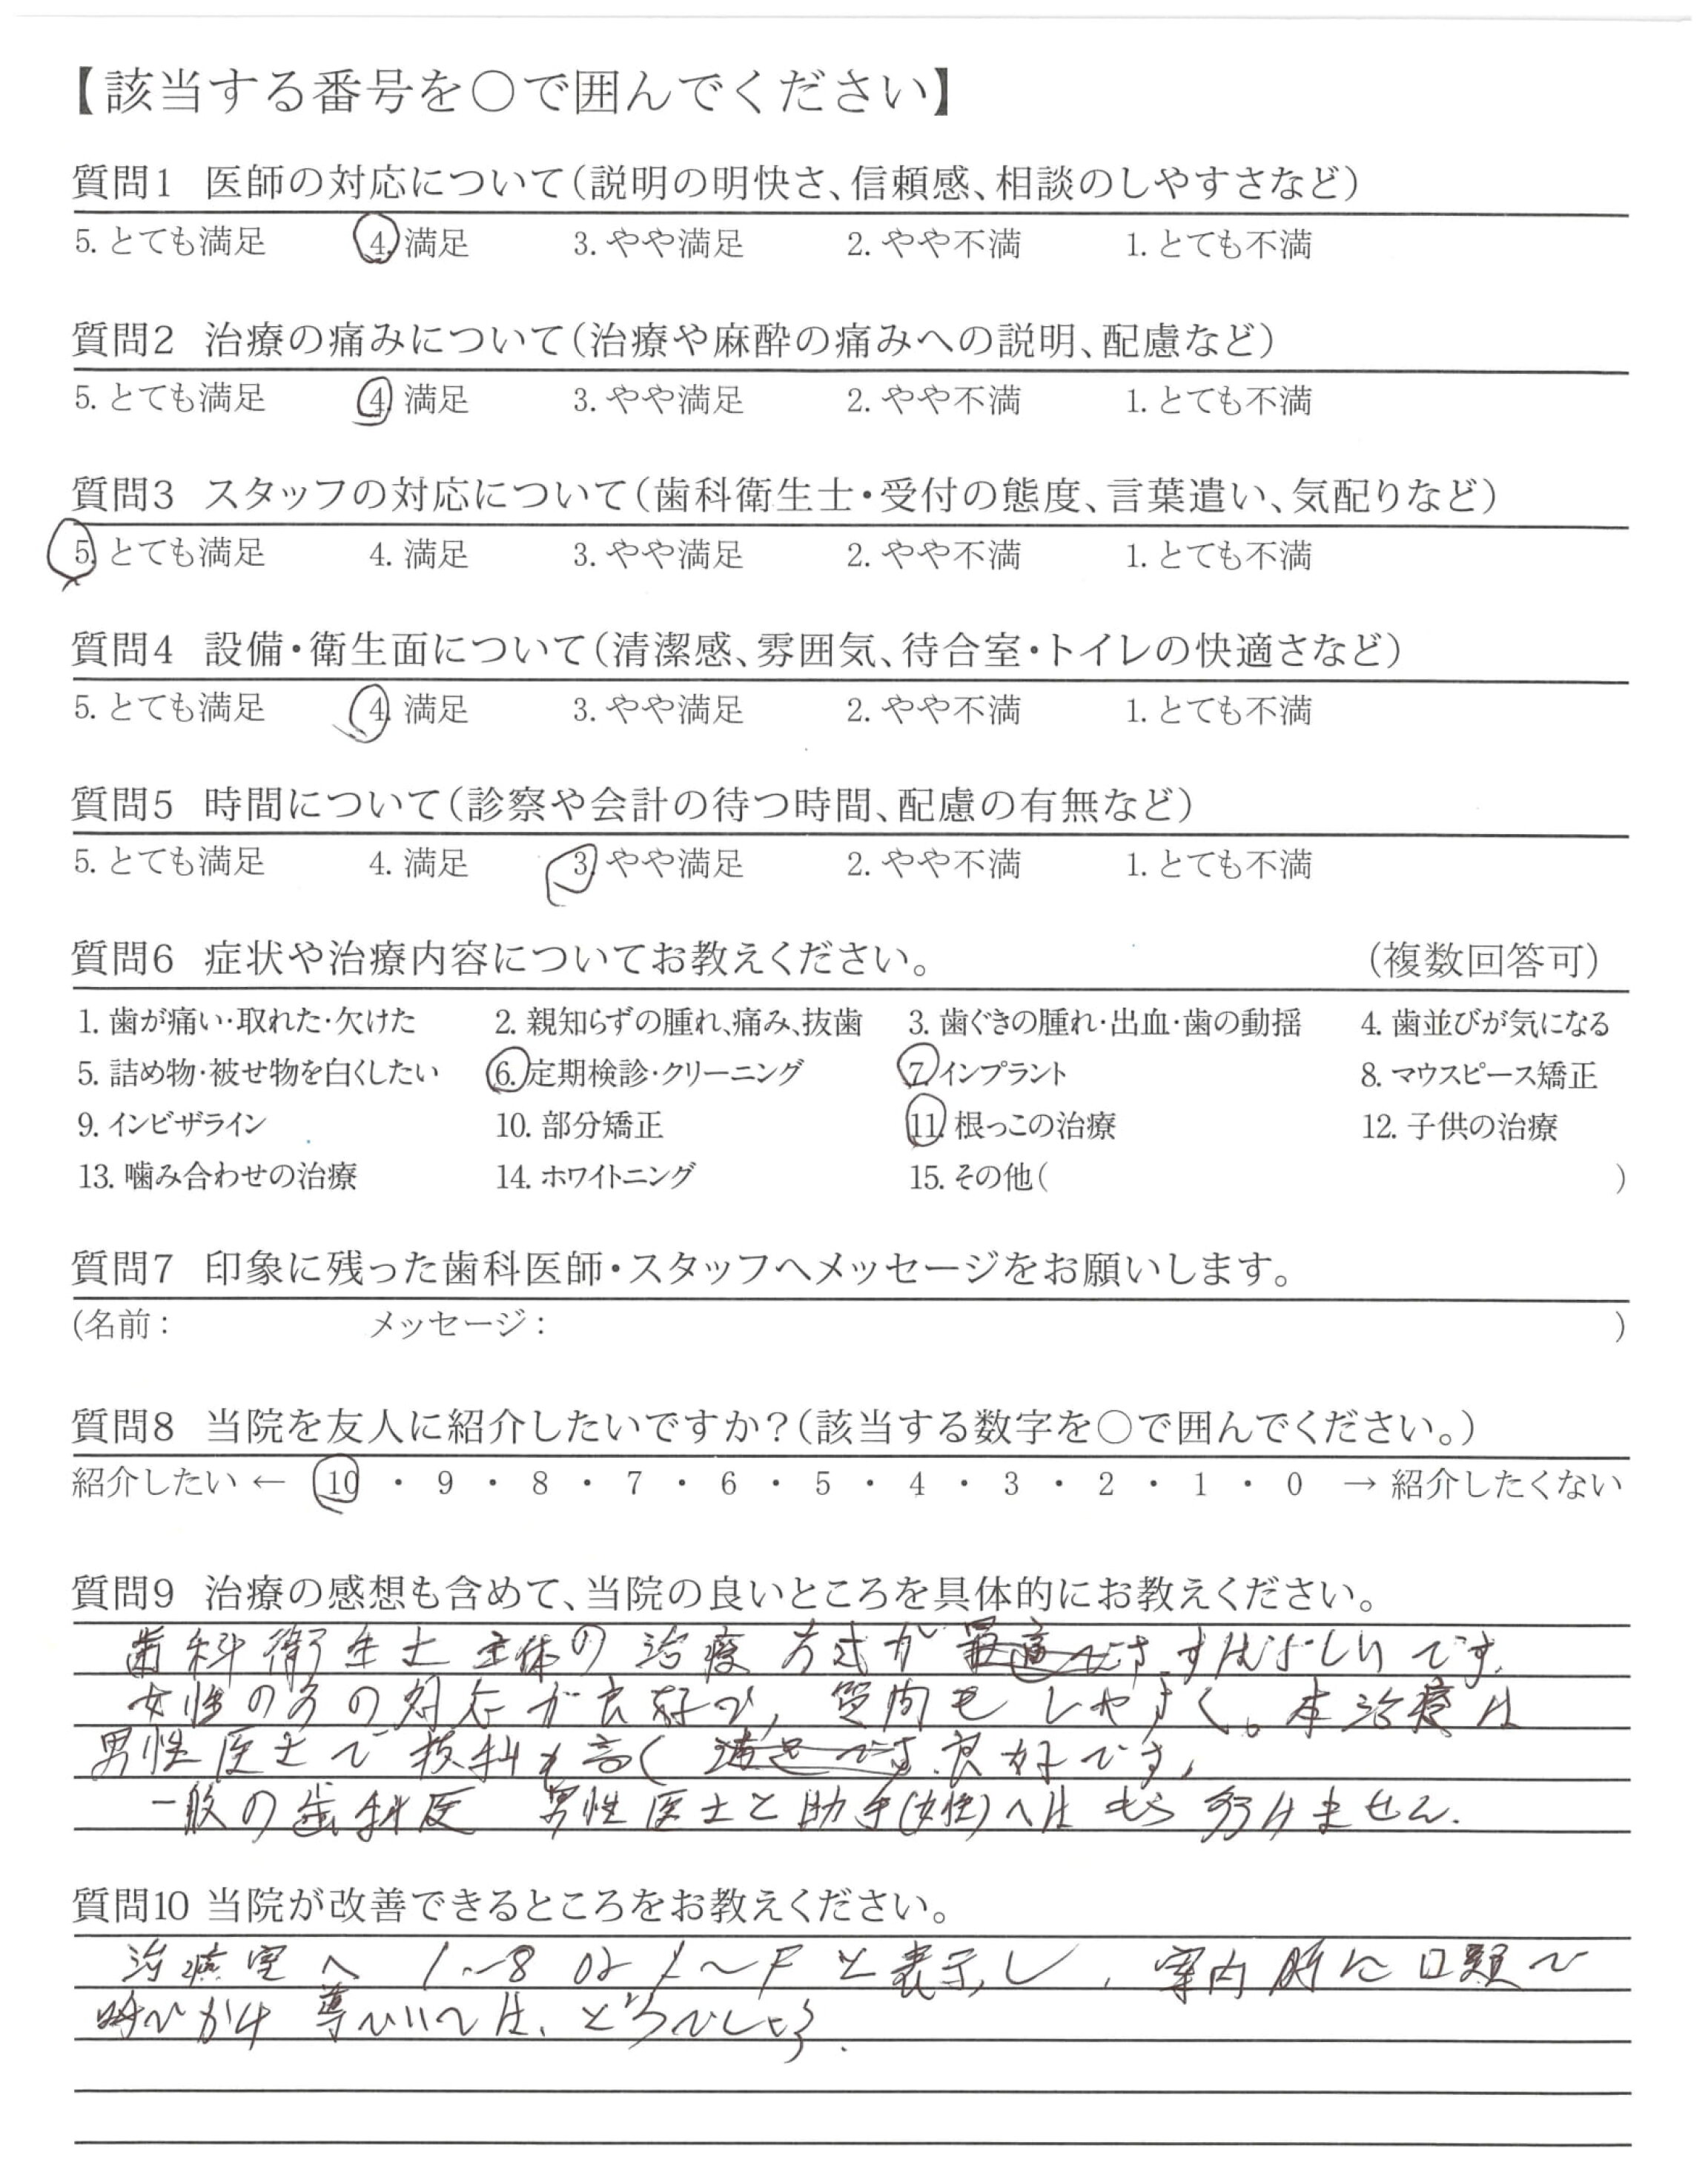 【該当する番号を○で囲んでください】
質問1 医師の対応について(説明の明快さ、信頼感、相談のしやすさなど)
5. とても満足 4. 満足 3. やや満足 2. やや不満 1. とても不満
質問2 治療の痛みについて(治療や麻酔の痛みへの説明、配慮など)
5. とても満足 4. 満足 3. やや満足 2. やや不満 1. とても不満
質問3 スタッフの対応について(歯科衛生士・受付の態度、言葉遣い、気配りなど)
5. とても満足 4. 満足 3. やや満足 2. やや不満 1. とても不満
質問4 設備・衛生面について(清潔感、雰囲気、待合室・トイレの快適さなど)
5. とても満足 4. 満足 3. やや満足 2. やや不満 1. とても不満
質問5 時間について(診察や会計の待つ時間、配慮の有無など)
5. とても満足 4. 満足 3. やや満足 2. やや不満 1. とても不満
質問6 症状や治療内容についてお教えください。 (複数回答可)
1. 歯が痛い・取れた・欠けた 2. 親知らずの腫れ、痛み、抜歯 3. 歯ぐきの腫れ・出血・歯の動揺 4. 歯並びが気になる
5. 詰め物・被せ物を白くしたい 6. 定期検診・クリーニング 7. インプラント 8. マウスピース矯正
9. インビザライン 10. 部分矯正 11. 根っこの治療 12. 子供の治療
13. 噛み合わせの治療 14. ホワイトニング 15. その他( )
質問7 印象に残った歯科医師・スタッフへメッセージをお願いします。
(名前: メッセージ: )
質問8 当院を友人に紹介したいですか?(該当する数字を○で囲んでください。)
紹介したい ← 10 ・ 9 ・ 8 ・ 7 ・ 6 ・ 5 ・ 4 ・ 3 ・ 2 ・ 1 ・ 0 → 紹介したくない
質問9 治療の感想も含めて、当院の良いところを具体的にお教えください。
歯科衛生士主体の治療方式が すばらしいです。
女性の方の対応が良好で、質問もしやすく。本治療は
男性医士で 高く 良好です。
一般の歯科医 男性医士と助手(女性)へはもう行けません.
質問10 当院が改善できるところをお教えください。
治療室へ 1~8 or ~F と表示し、案内所に口頭で
呼びかけ 導いては、どうでしょう.